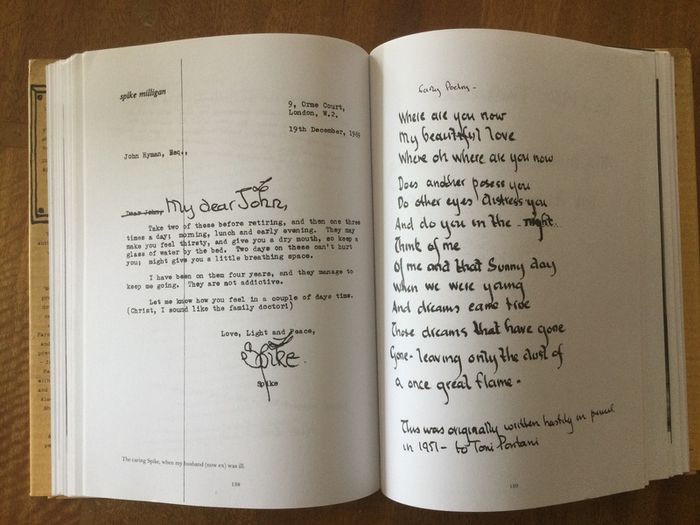 spike milligan
9, Orme Court,
London, W.2.
19th December, 1969
John Hyman, Esq.,
Dear John, My dear John,
Take two of these before retiring, and then one three
times a day; morning, lunch and early evening. They may
make you feel thirsty, and give you a dry mouth, so keep a
glass of water by the bed. Two days on these can't hurt
you; might give you a little breathing space.
I have been on them four years, and they manage to
keep me going. They are not addictive.
Let me know how you feel in a couple of days time.
(Christ, I sound like the family doctor!)
Love, Light and Peace,
Spike.
Spike
The caring Spike, when my husband (now ex) was ill.
188
Early Poetry -
Where are you now
My beautiful love
Where oh where are you now
Does another posess you
Do other eyes distress you
And do you in the night
Think of me
Of me and that Sunny day
When we were young
And dreams came true
Those dreams that have gone
Gone - leaving only the dust of
a once great flame -
This was originally written hastily in pencil
in 1951 - to Toni Pontani
189